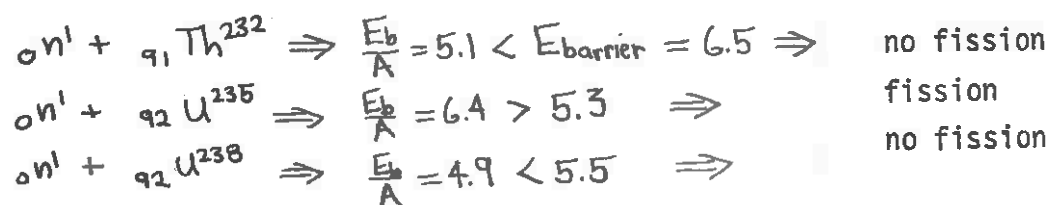 ₀n¹ + ₉₁Th²³² ⇒ Eb/A = 5.1 < Ebarrier = 6.5 ⇒ no fission
₀n¹ + ₉₂U²³⁵ ⇒ Eb/A = 6.4 > 5.3 ⇒ fission
₀n¹ + ₉₂U²³⁸ ⇒ Eb/A = 4.9 < 5.5 ⇒ no fission